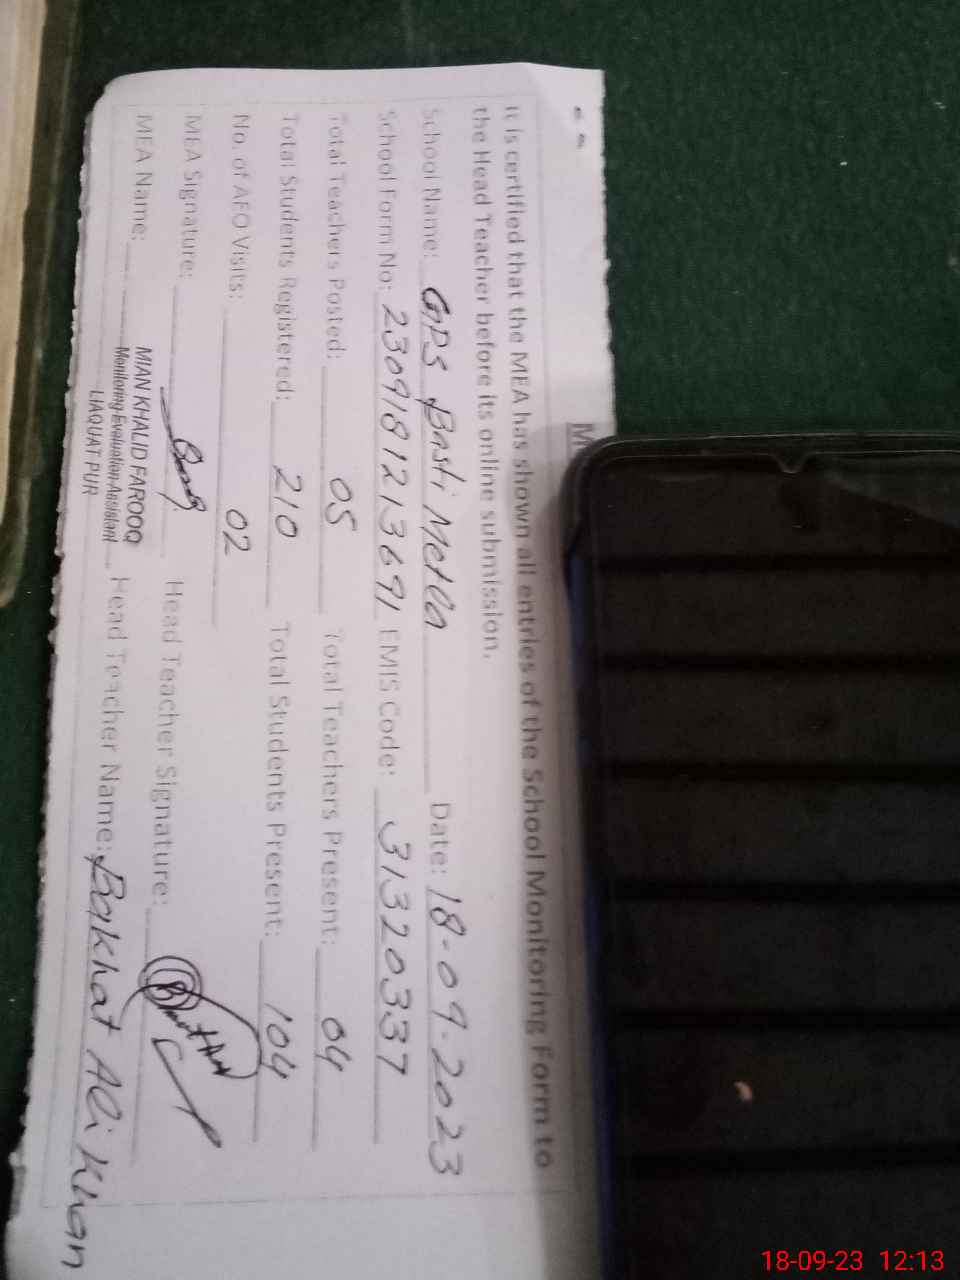 M
It is certified that the MEA has shown all entries of the School Monitoring Form to
the Head Teacher before its online submission.
School Name: GPS Basti Metla Date: 18-09-2023
School Form No: 2309181213691 EMIS Code: 31320337
Total Teachers Posted: 05 Total Teachers Present: 04
Total Students Registered: 210 Total Students Present: 104
No. of AEO Visits: 02
MEA Signature: Head Teacher Signature:
MEA Name: MIAN KHALID FAROOQ Head Teacher Name: Bakhat Ali Khan
Monitoring Evaluation Assistant
LIAQUAT PUR
18-09-23 12:13